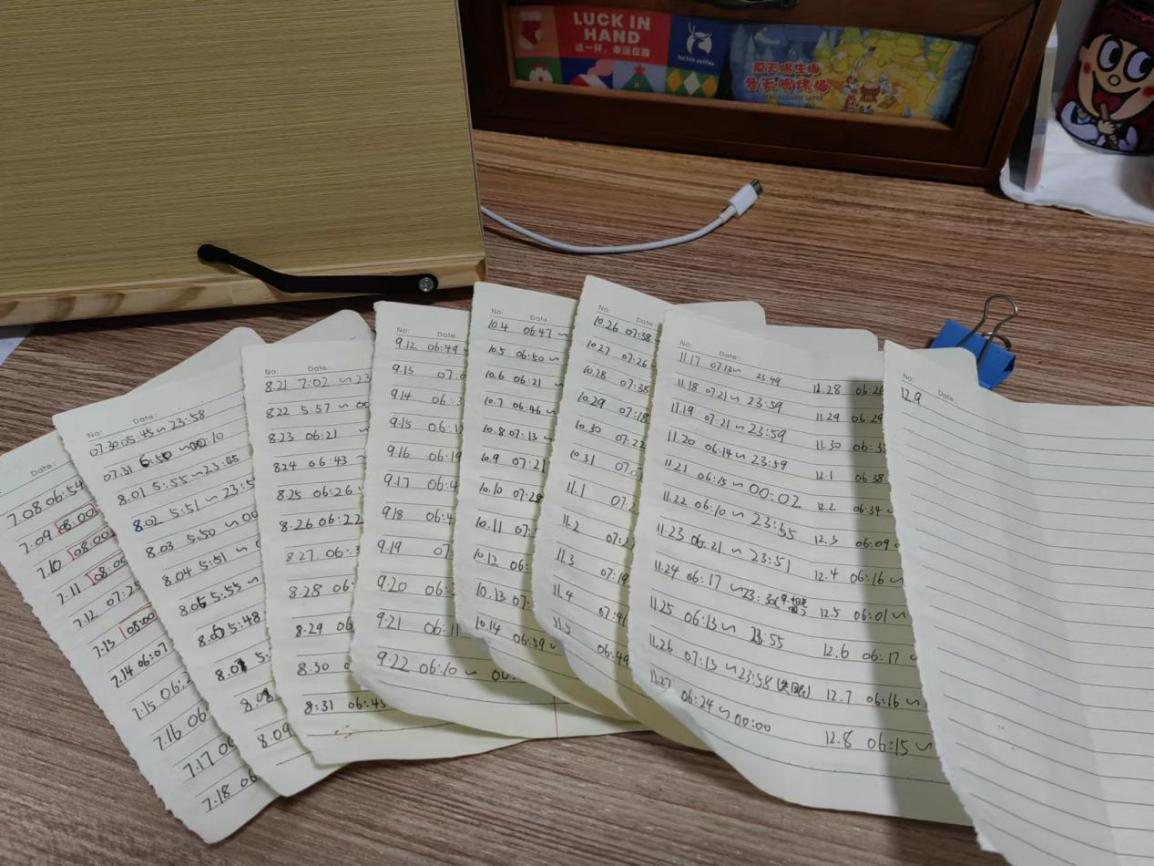 LUCK IN
HAND
这一杯，幸运在握
luckin coffee
夏天喝生啤
冬天喝烤梅
Date:
7.08 06:54
7.09 08:00
7.10 08:00
7.11 08:0
7.12 07:2
7.13 08:00
7.14 06:07
7.15 06:2
7.16 06:
7.17 0
7.18 06
No: Date:
07.30 05:45~23:58
07.31 6:50 ~ :10
8.01 5:55~23:
8.02 5:51~23:5
8.03 5:50 ~00
8.04 5:51 ~
8.05 5:55~
5:48
5:
8.09
No: Date:
8.21 7:02 ~23
8.22 5:57 ~ 00
8.23 06:21 ~
8.24 06:43
8.25 06:26
8.26 06:22
8.27 06:3
8.28 06:
8.29 06
8.30 0
8.31 06:45
No: Date:
9.12 06:49
9.13 07:
9.14 06:
9.15 06:1
9.16 06:19
9.17 06:4
9.18 06:4
9.19 07
9.20 06:
9.21 06:11
9.22 06:10~ 00:
No: Date:
10.4 06:47 ~
10.5 06:50 ~
10.6 06:21 ~
10.7 06:46 ~
10.8 07:13 ~
10.9 07:21
10.10 07:28
10.11 07:
10.12 06:
10.13 07:
10.14 06:59~
No: Date:
10.26 07:38
10.27 07:26
10.28 07:38
10.29 07:18
10.30 07:22
10.31 07:
11.1 07:2
11.2 07:2
11.3 07:19
11.4 07:41
11.5 06:49
No: Date:
11.17 07:13~ 23:49
11.18 07:21~ 23:59
11.19 07:21~ 23:59
11.20 06:14~ 23:59
11.21 06:15~00:02
11.22 06:10~ 23:55
11.23 06:21 ~ 23:51
11.24 06:17 ~23:30
11.25 06:13~ 23:55
11.26 07:13~23:58
11.27 06:24~00:00
11.28 06:2
11.29 06:29
11.30 06:3
12.1 06:38
12.2 06:34~
12.3 06:09
12.4 06:16~
12.5 06:01~
12.6 06:17
12.7 06:16~
12.8 06:15~
No: Date:
12.9